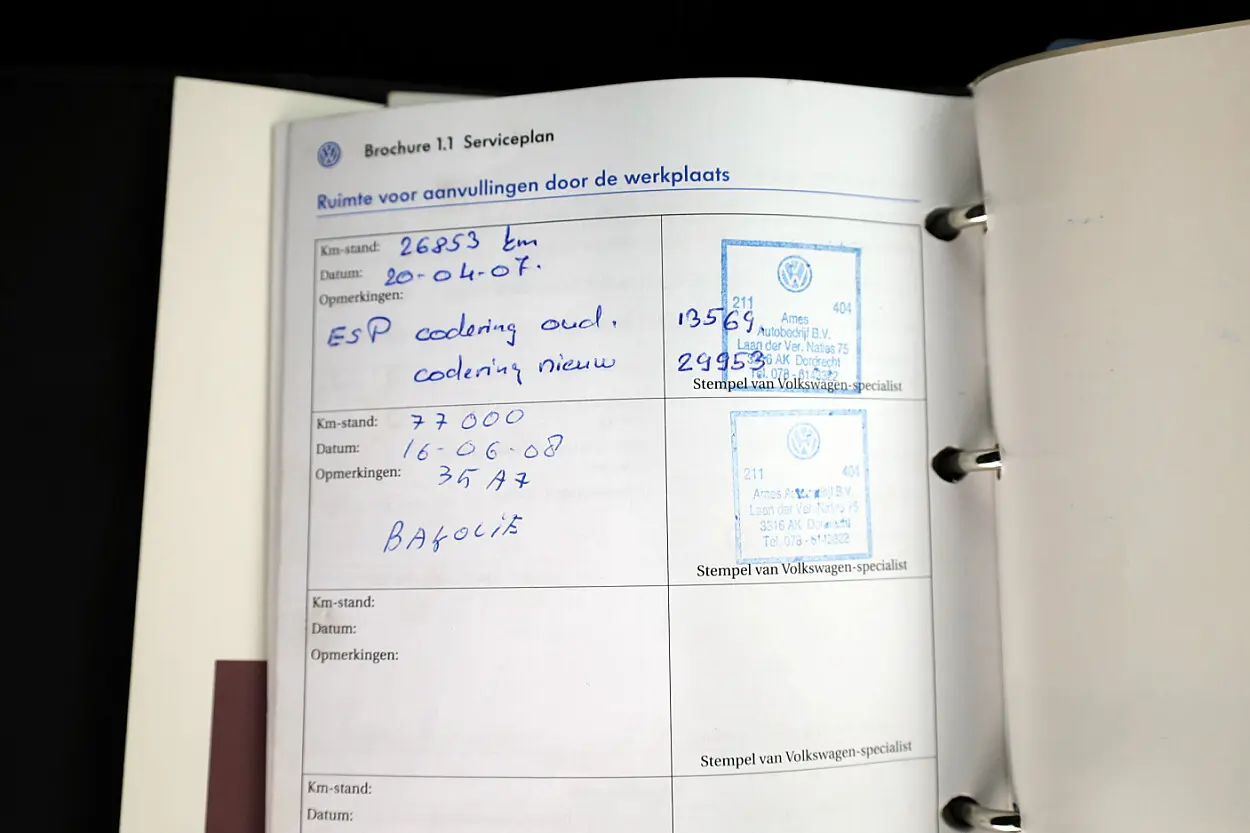 Brochure 1.1 Serviceplan
Ruimte voor aanvullingen door de werkplaats
Km-stand: 26853 km
Datum: 20-04-07.
Opmerkingen:
ESP codering oud. 13569
codering nieuw 29953
211 404
Ames
Autobedrijf B.V.
Laan der Ver. Naties 75
3316 AK Dordrecht
Tel. 078 -
Stempel van Volkswagen-specialist
Km-stand: 77000
Datum: 16-06-08
Opmerkingen: 35 A7
211 404
Ames B.V.
Laan der Ver. 75
3316 AK
Tel. 078 - 6142822
Stempel van Volkswagen-specialist
Km-stand:
Datum:
Opmerkingen:
Stempel van Volkswagen-specialist
Km-stand:
Datum: